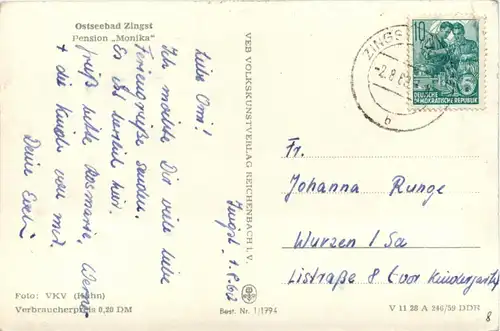 Ostseebad Zingst
Pension „Monika“
Zingst, 1.8.60
Liebe Omi!
Ich möchte Dir viele liebe
Feriengrüße senden.
Es ist herrlich hier.
Grüß bitte Rosmarie, Werner
+ die Kinder von mir.
Deine
Foto: VKV (Hahn)
Verbraucherpreis 0,20 DM
VEB VOLKSKUNSTVERLAG REICHENBACH I. V.
Best. Nr. 1/1794
ZINGST
-2.8.60
b
10
5
DEUTSCHE
DEMOKRATISCHE REPUBLIK
Fr.
Johanna Runge
Wurzen / Sa
Listraße 8 (vor Kindergarten)
V 11 28 A 246/59 DDR
8